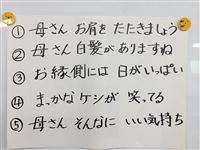 ① 母さん お肩を たたきましょう
② 母さん 白髪が ありますね
③ お縁側には 日がいっぱい
④ まっかな ケシが 笑ってる
⑤ 母さん そんなに いい気持ち